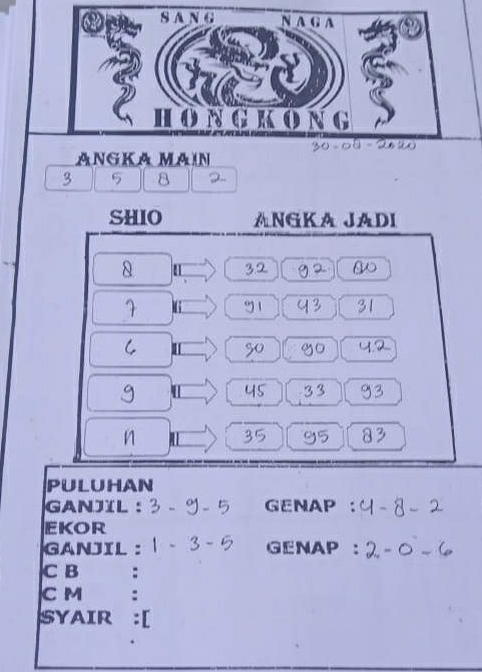 SANG NAGA
HONGKONG
30-08-2020
ANGKA MAIN
3 5 8 2
SHIO ANGKA JADI
8 32 92 80
7 91 43 31
6 90 42
9 45 33 93
11 35 95 83
PULUHAN
GANJIL : 3 - 9 - 5 GENAP : 4 - 8 - 2
EKOR
GANJIL : 1 - 3 - 5 GENAP : 2 - 0 - 6
C B :
C M :
SYAIR :[